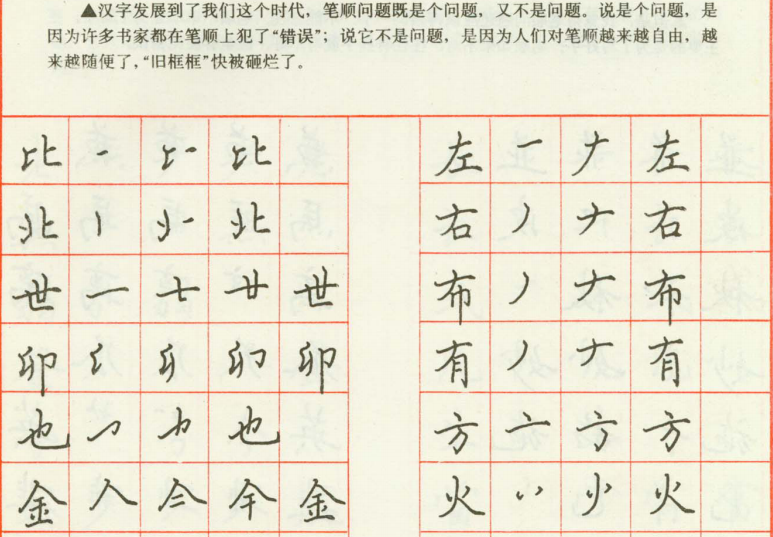 ▲汉字发展到了我们这个时代，笔顺问题既是个问题，又不是问题。说是个问题，是
因为许多书家都在笔顺上犯了“错误”；说它不是问题，是因为人们对笔顺越来越自由，越
来越随便了，“旧框框”快被砸烂了。
比 比 左 一 𠂇 左
北 丨 北 右 丿 𠂇 右
世 一 七 廿 世 布 丿 𠂇 布
卯 卯 卯 有 丿 𠂇 有
也 也 方 亠 方 方
金 人 亼 金 火 火